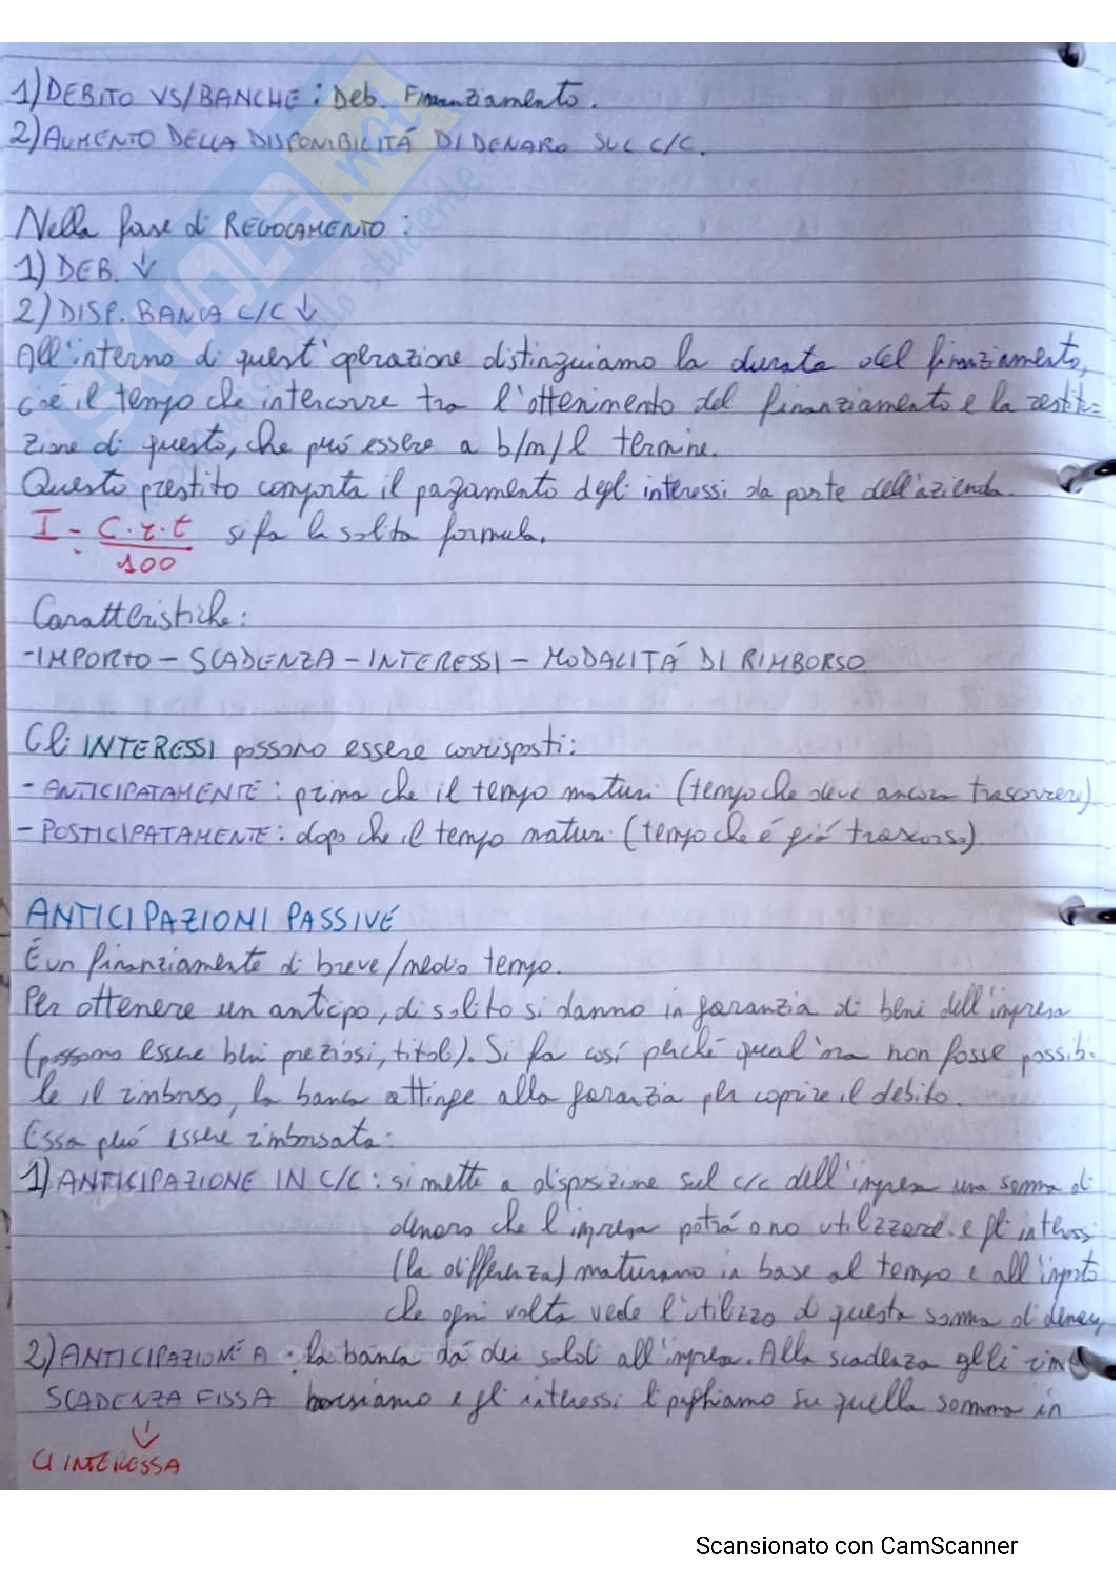 1) DEBITO VS/BANCHE : Deb. Finanziamento.
2) AUMENTO DELLA DISPONIBILITÁ DI DENARO SUL C/C.
Nella fase di REGOLAMENTO :
1) DEB. ↓
2) DISP. BANCA C/C ↓
All'interno di quest'operazione distinguiamo la durata del finanziamento,
cioé il tempo che intercorre tra l'ottenimento del finanziamento e la restitu-
zione di questo, che può essere a b/m/l termine.
Questo prestito comporta il pagamento degli interessi da parte dell'azienda.
I = C·r·t si fa la solita formula.
100
Caratteristiche:
-IMPORTO – SCADENZA – INTERESSI – MODALITÁ DI RIMBORSO
Gli INTERESSI possono essere corrisposti:
- ANTICIPATAMENTE : prima che il tempo maturi (tempo che deve ancora trascorrere)
- POSTICIPATAMENTE : dopo che il tempo maturi (tempo che é giá trascorso)
ANTICIPAZIONI PASSIVE
É un finanziamento di breve/medio tempo.
Per ottenere un anticipo, di solito si danno in garanzia di beni dell'impresa
(possono essere beni preziosi, titoli). Si fa cosí perché qual'ora non fosse possibi-
le il rimborso, la banca attinge alla garanzia per coprire il debito.
Essa puó essere rimborsata:
1) ANTICIPAZIONE IN C/C : si mette a disposizione sul c/c dell'impresa una somma di
denaro che l'impresa potrá o no utilizzare e gli interessi
(la differenza) maturano in base al tempo e all'importo
che ogni volta vede l'utilizzo di questa somma di denaro,
2) ANTICIPAZIONE A : la banca dá dei soldi all'impresa. Alla scadenza glieli rim-
SCADENZA FISSA borsiamo e gli interessi li paghiamo su quella somma in
↓
CI INTERESSA
Scansionato con CamScanner